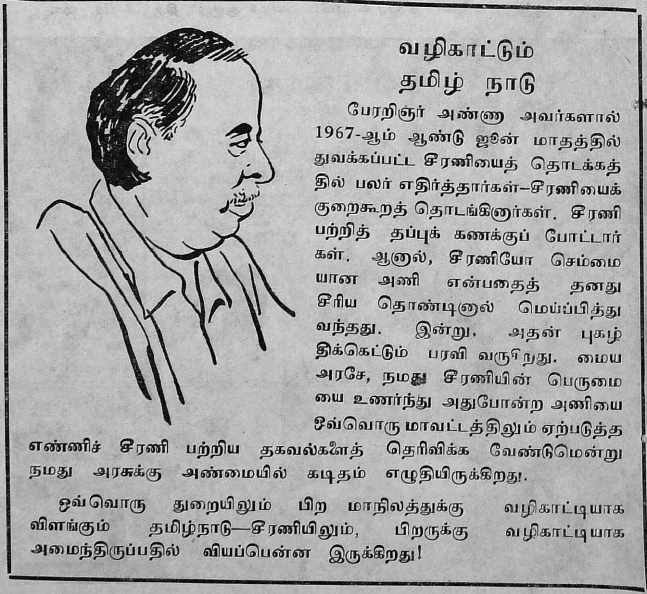 வழிகாட்டும்
தமிழ் நாடு
பேரறிஞர் அண்ணா அவர்களால்
1967-ஆம் ஆண்டு ஜூன் மாதத்தில்
துவக்கப்பட்ட சீரணியைத் தொடக்கத்
தில் பலர் எதிர்த்தார்கள்—சீரணியைக்
குறைகூறத் தொடங்கினார்கள். சீரணி
பற்றித் தப்புக் கணக்குப் போட்டார்
கள். ஆனால், சீரணியோ செம்மை
யான அணி என்பதைத் தனது
சீரிய தொண்டினால் மெய்ப்பித்து
வந்தது. இன்று. அதன் புகழ்
திக்கெட்டும் பரவி வருகிறது. மைய
அரசே, நமது சீரணியின் பெருமை
யை உணர்ந்து அதுபோன்ற அணியை
ஒவ்வொரு மாவட்டத்திலும் ஏற்படுத்த
எண்ணிச் சீரணி பற்றிய தகவல்களைத் தெரிவிக்க வேண்டுமென்று
நமது அரசுக்கு அண்மையில் கடிதம் எழுதியிருக்கிறது.
ஒவ்வொரு துறையிலும் பிற மாநிலத்துக்கு வழிகாட்டியாக
விளங்கும் தமிழ்நாடு—சீரணியிலும், பிறருக்கு வழிகாட்டியாக
அமைந்திருப்பதில் வியப்பென்ன இருக்கிறது!